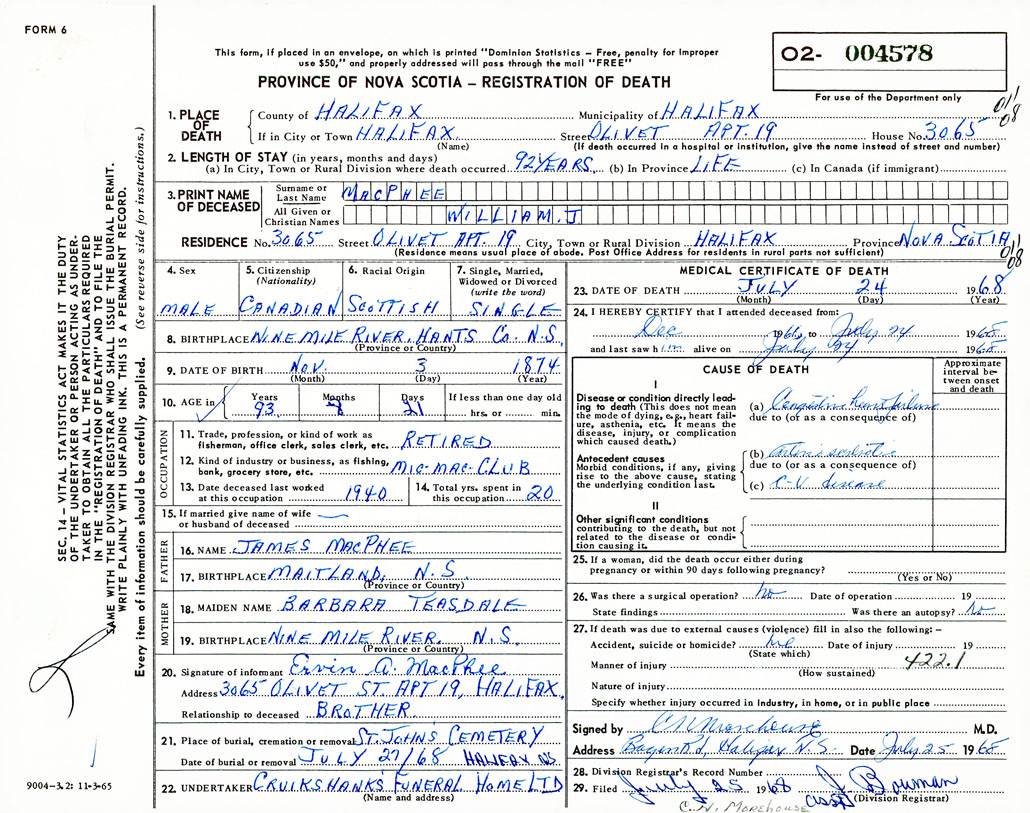 FORM 6
This form, if placed in an envelope, on which is printed "Dominion Statistics – Free, penalty for improper
use $50," and properly addressed will pass through the mail "FREE"
PROVINCE OF NOVA SCOTIA – REGISTRATION OF DEATH
O2- 004578
For use of the Department only
011
08
1. PLACE OF DEATH
County of HALIFAX Municipality of HALIFAX
If in City or Town HALIFAX Street OLIVET APT. 19 House No. 3065
(Name) (If death occurred in a hospital or institution, give the name instead of street and number)
2. LENGTH OF STAY (in years, months and days)
(a) In City, Town or Rural Division where death occurred 92 YEARS (b) In Province LIFE (c) In Canada (if immigrant)
3. PRINT NAME OF DECEASED
Surname or Last Name MACPHEE
All Given or Christian Names WILLIAM.J
RESIDENCE No. 3065 Street OLIVET APT. 19 City, Town or Rural Division HALIFAX Province NOVA SCOTIA
(Residence means usual place of abode. Post Office Address for residents in rural parts not sufficient)
011
08
4. Sex
MALE
5. Citizenship
(Nationality)
CANADIAN
6. Racial Origin
SCOTTISH
7. Single, Married,
Widowed or Divorced
(write the word)
SINGLE
8. BIRTHPLACE NINE MILE RIVER, HANTS CO. N.S.
(Province or Country)
9. DATE OF BIRTH NOV. 3 1874
(Month) (Day) (Year)
10. AGE in Years Months Days If less than one day old
93 8 21 hrs. or min.
OCCUPATION
11. Trade, profession, or kind of work as
fisherman, office clerk, sales clerk, etc. RETIRED
12. Kind of industry or business, as fishing,
bank, grocery store, etc. MIC-MAC-CLUB
13. Date deceased last worked
at this occupation 1940
14. Total yrs. spent in
this occupation 20
15. If married give name of wife
or husband of deceased
FATHER
16. NAME JAMES MACPHEE
17. BIRTHPLACE MAITLAND, N.S.
(Province or Country)
MOTHER
18. MAIDEN NAME BARBARA TEASDALE
19. BIRTHPLACE NINE MILE RIVER, N.S.
(Province or Country)
20. Signature of informant Ervin A. MacPhee
Address 3065 OLIVET ST. APT 19, HALIFAX.
Relationship to deceased BROTHER.
21. Place of burial, cremation or removal ST. JOHNS CEMETERY
Date of burial or removal JULY 27/68 HALIFAX NS
22. UNDERTAKER CRUIKSHANKS FUNERAL HOME LTD
(Name and address)
MEDICAL CERTIFICATE OF DEATH
23. DATE OF DEATH JULY 24 1968
(Month) (Day) (Year)
24. I HEREBY CERTIFY that I attended deceased from:
Dec 1966, to July 24 1968
and last saw him alive on July 24 1968
CAUSE OF DEATH
Approximate
interval be-
tween onset
and death
I
Disease or condition directly lead-
ing to death (This does not mean
the mode of dying, e.g., heart fail-
ure, asthenia, etc. It means the
disease, injury, or complication
which caused death.)
(a) Congestive heart failure
due to (or as a consequence of)
Antecedent causes
Morbid conditions, if any, giving
rise to the above cause, stating
the underlying condition last.
(b)
due to (or as a consequence of)
(c) C-V disease
II
Other significant conditions
contributing to the death, but not
related to the disease or condi-
tion causing it.
25. If a woman, did the death occur either during
pregnancy or within 90 days following pregnancy?
(Yes or No)
26. Was there a surgical operation? No Date of operation 19
State findings Was there an autopsy? No
27. If death was due to external causes (violence) fill in also the following: –
Accident, suicide or homicide? Date of injury 19
(State which)
Manner of injury 422.1
(How sustained)
Nature of injury
Specify whether injury occurred in Industry, in home, or in public place
Signed by C H Morehouse M.D.
Address Halifax N.S. Date July 25 1968
28. Division Registrar's Record Number
29. Filed July 25 1968 J. Bowman
asst (Division Registrar)
C. H. MOREHOUSE
SEC. 14 – VITAL STATISTICS ACT MAKES IT THE DUTY
OF THE UNDERTAKER OR PERSON ACTING AS UNDER-
TAKER TO OBTAIN ALL THE PARTICULARS REQUIRED
IN THE "REGISTRATION OF DEATH" AND TO FILE THE
SAME WITH THE DIVISION REGISTRAR WHO SHALL ISSUE THE BURIAL PERMIT.
WRITE PLAINLY WITH UNFADING INK. THIS IS A PERMANENT RECORD.
Every item of information should be carefully supplied. (See reverse side for instructions.)
9004-3.2: 11-3-65